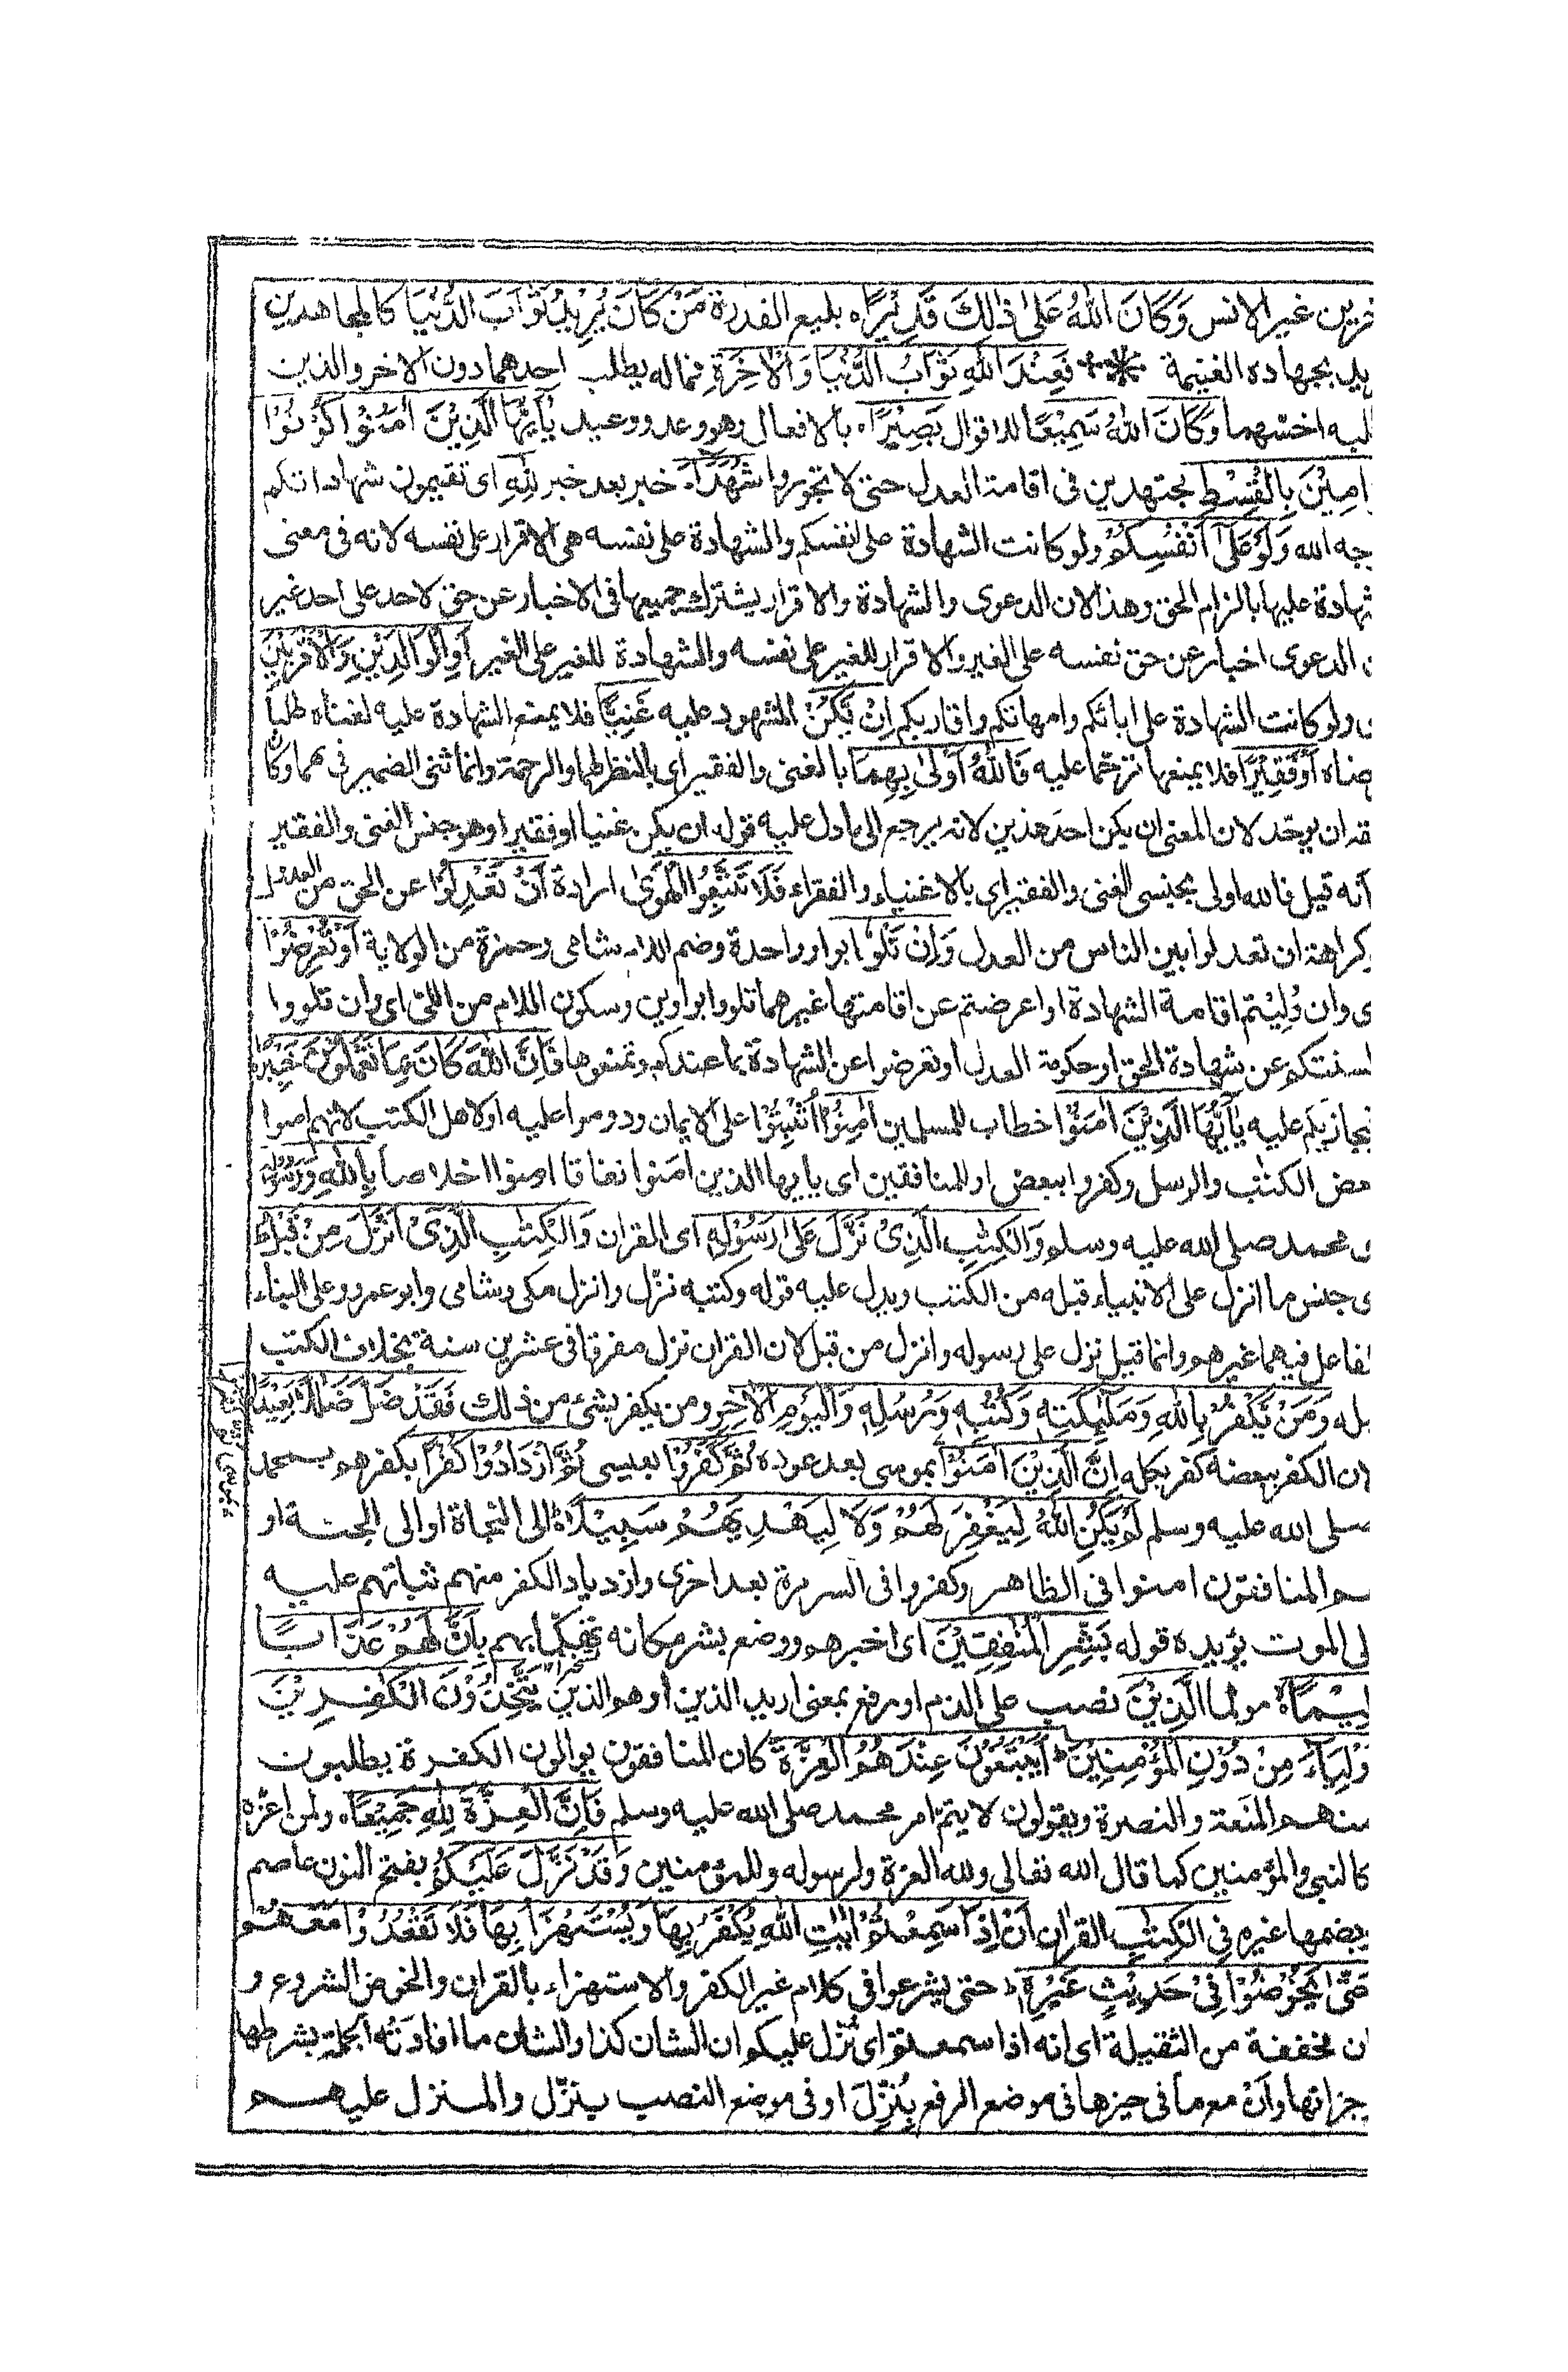 خرين غير الانس وَكَانَ اللّٰهُ عَلٰى ذٰلِكَ قَدِيْرًا ۝ بليغ القدرة مَنْ كَانَ يُرِيْدُ ثَوَابَ الدُّنْيَا كالمجاهدين
يد بجهاده الغنيمة فَعِنْدَ اللّٰهِ ثَوَابُ الدُّنْيَا وَالْاٰخِرَةِ فماله يطلب احدهما دون الاخر والذين
لبه اخسهما وَكَانَ اللّٰهُ سَمِيْعًا للاقوال بَصِيْرًا ۝ بالافعال وهو وعد ووعيد يٰٓاَيُّهَا الَّذِيْنَ اٰمَنُوْا كُوْنُوْا
امِيْنَ بِالْقِسْطِ مجتهدين فى اقامة العدل حتى لا تجوروا شُهَدَآءَ خبر بعد خبر لِلّٰهِ اى تقيمون شهاداتكم
جه الله وَلَوْ عَلٰٓى اَنْفُسِكُمْ ولو كانت الشهادة على انفسكم والشهادة على نفسه هى الاقرار على نفسه لانه فى معنى
شهادة عليها بالزام الحق وهذا لان الدعوى والشهادة والاقرار يشترك جميعها فى الاخبار عن حق لاحد على احد غير
ن الدعوى اخبار عن حق نفسه على الغير والاقرار للغير على نفسه والشهادة للغير على الغير اَوِ الْوَالِدَيْنِ وَالْاَقْرَبِيْنَ
ى ولو كانت الشهادة على ابائكم وامهاتكم واقاربكم اِنْ يَّكُنْ المشهود عليه غَنِيًّا فلا يمنع الشهادة عليه لغناه طلبا
ضاه اَوْ فَقِيْرًا فلا يمنعها ترحما عليه فَاللّٰهُ اَوْلٰى بِهِمَا بالغنى والفقير اى بالنظر لهما والرحمة وانما ثنى الضمير فى بهما وكان
قه ان يوحّد لان المعنى ان يكن احد هذين لانه يرجع الى ما دل عليه قوله ان يكن غنيا او فقيرا وهو جنس الغنى والفقير
انه قيل فالله اولى بجنسى الغنى والفقير اى بالاغنياء والفقراء فَلَا تَتَّبِعُوا الْهَوٰٓى ارادة اَنْ تَعْدِلُوْا عن الحق من العدول
وكراهة ان تعدلوا بين الناس من العدل وَاِنْ تَلُوْا بواو واحدة وضم اللام شامى وحمزة من الولاية اَوْ تُعْرِضُوْا
ى وان وُلِيْتم اقامة الشهادة او اعرضتم عن اقامتها غيرهما تلووا بواوين وسكون اللام من اللىّ اى وان تلووا
لسنتكم عن شهادة الحق او حكومة العدل او تعرضوا عن الشهادة بما عندكم وتمنعوها فَاِنَّ اللّٰهَ كَانَ بِمَا تَعْمَلُوْنَ خَبِيْرًا
يجازيكم عليه يٰٓاَيُّهَا الَّذِيْنَ اٰمَنُوْا خطاب للمسلمين اٰمِنُوْا اُثْبُتُوْا على الايمان ودوموا عليه او لاهل الكتب لانهم امنوا
عض الكتٰب والرسل وكفروا ببعض او للمنافقين اى يايها الذين امنوا نفاقا امنوا اخلاصا بِاللّٰهِ وَرَسُوْلِهٖ
ى محمد صلى الله عليه وسلم وَالْكِتٰبِ الَّذِىْ نَزَّلَ عَلٰى رَسُوْلِهٖ اى القران وَالْكِتٰبِ الَّذِىْٓ اَنْزَلَ مِنْ قَبْلُ
ى جنس ما انزل على الانبياء قبله من الكتب ويدل عليه قوله وكتبه نزّل وانزل مكى وشامى وابو عمرو وعلى البناء
لفاعل فيهما غيرهم وانما قيل نزل على رسوله وانزل من قبل لان القران نزل مفرقا فى عشرين سنة بخلاف الكتب
بله وَمَنْ يَّكْفُرْ بِاللّٰهِ وَمَلٰٓئِكَتِهٖ وَكُتُبِهٖ وَرُسُلِهٖ وَالْيَوْمِ الْاٰخِرِ ومن يكفر بشئ من ذلك فَقَدْ ضَلَّ ضَلٰلًا بَعِيْدًا
لان الكفر ببعضه كفر بكله اِنَّ الَّذِيْنَ اٰمَنُوْا بموسى بعد عوده ثُمَّ كَفَرُوْا بعيسى ثُمَّ ازْدَادُوْا كُفْرًا بكفرهم بمحمد
صلى الله عليه وسلم لَمْ يَكُنِ اللّٰهُ لِيَغْفِرَ لَهُمْ وَلَا لِيَهْدِيَهُمْ سَبِيْلًا ۝ الى النجاة او الى الجنة او
هم المنافقون امنوا فى الظاهر وكفروا فى السريرة بعد اخرى وازدياد الكفر منهم ثباتهم عليه
لى الموت يؤيده قوله بَشِّرِ الْمُنٰفِقِيْنَ اى اخبرهم ووضع بشر مكانه تهكّما بهم بِاَنَّ لَهُمْ عَذَابًا
لِيْمًا ۝ مولما الَّذِيْنَ نصب على الذم او رفع بمعنى اريد الذين او هم الذين يَتَّخِذُوْنَ الْكٰفِرِيْنَ
وْلِيَآءَ مِنْ دُوْنِ الْمُؤْمِنِيْنَ ؕ اَيَبْتَغُوْنَ عِنْدَهُمُ الْعِزَّةَ كان المنافقون يوالون الكفرة يطلبون
منهم المنَعة والنصرة ويقولون لا يتم امر محمد صلى الله عليه وسلم فَاِنَّ الْعِزَّةَ لِلّٰهِ جَمِيْعًا ۝ ولمن اعزّه
كالنبى والمؤمنين كما قال الله تعالى ولله العزة ولرسوله وللمؤمنين وَقَدْ نَزَّلَ عَلَيْكُمْ بفتح النون عاصم
بضمها غيره فِى الْكِتٰبِ القران اَنْ اِذَا سَمِعْتُمْ اٰيٰتِ اللّٰهِ يُكْفَرُ بِهَا وَيُسْتَهْزَاُ بِهَا فَلَا تَقْعُدُوْا مَعَهُمْ
حَتّٰى يَخُوْضُوْا فِىْ حَدِيْثٍ غَيْرِهٖٓ حتى يشرعوا فى كلام غير الكفر والاستهزاء بالقران والخوض الشروع و
ان مخففة من الثقيلة اى انه اذا سمعتم اى نُزّل عليكم ان الشان كذا والشان ما افادَتْه الجملة بشرطها
جزائها وَاَنْ مع ما فى حيزها فى موضع الرفع بِنُزِّلَ او فى موضع النصب بنزّل والمنزل عليهم